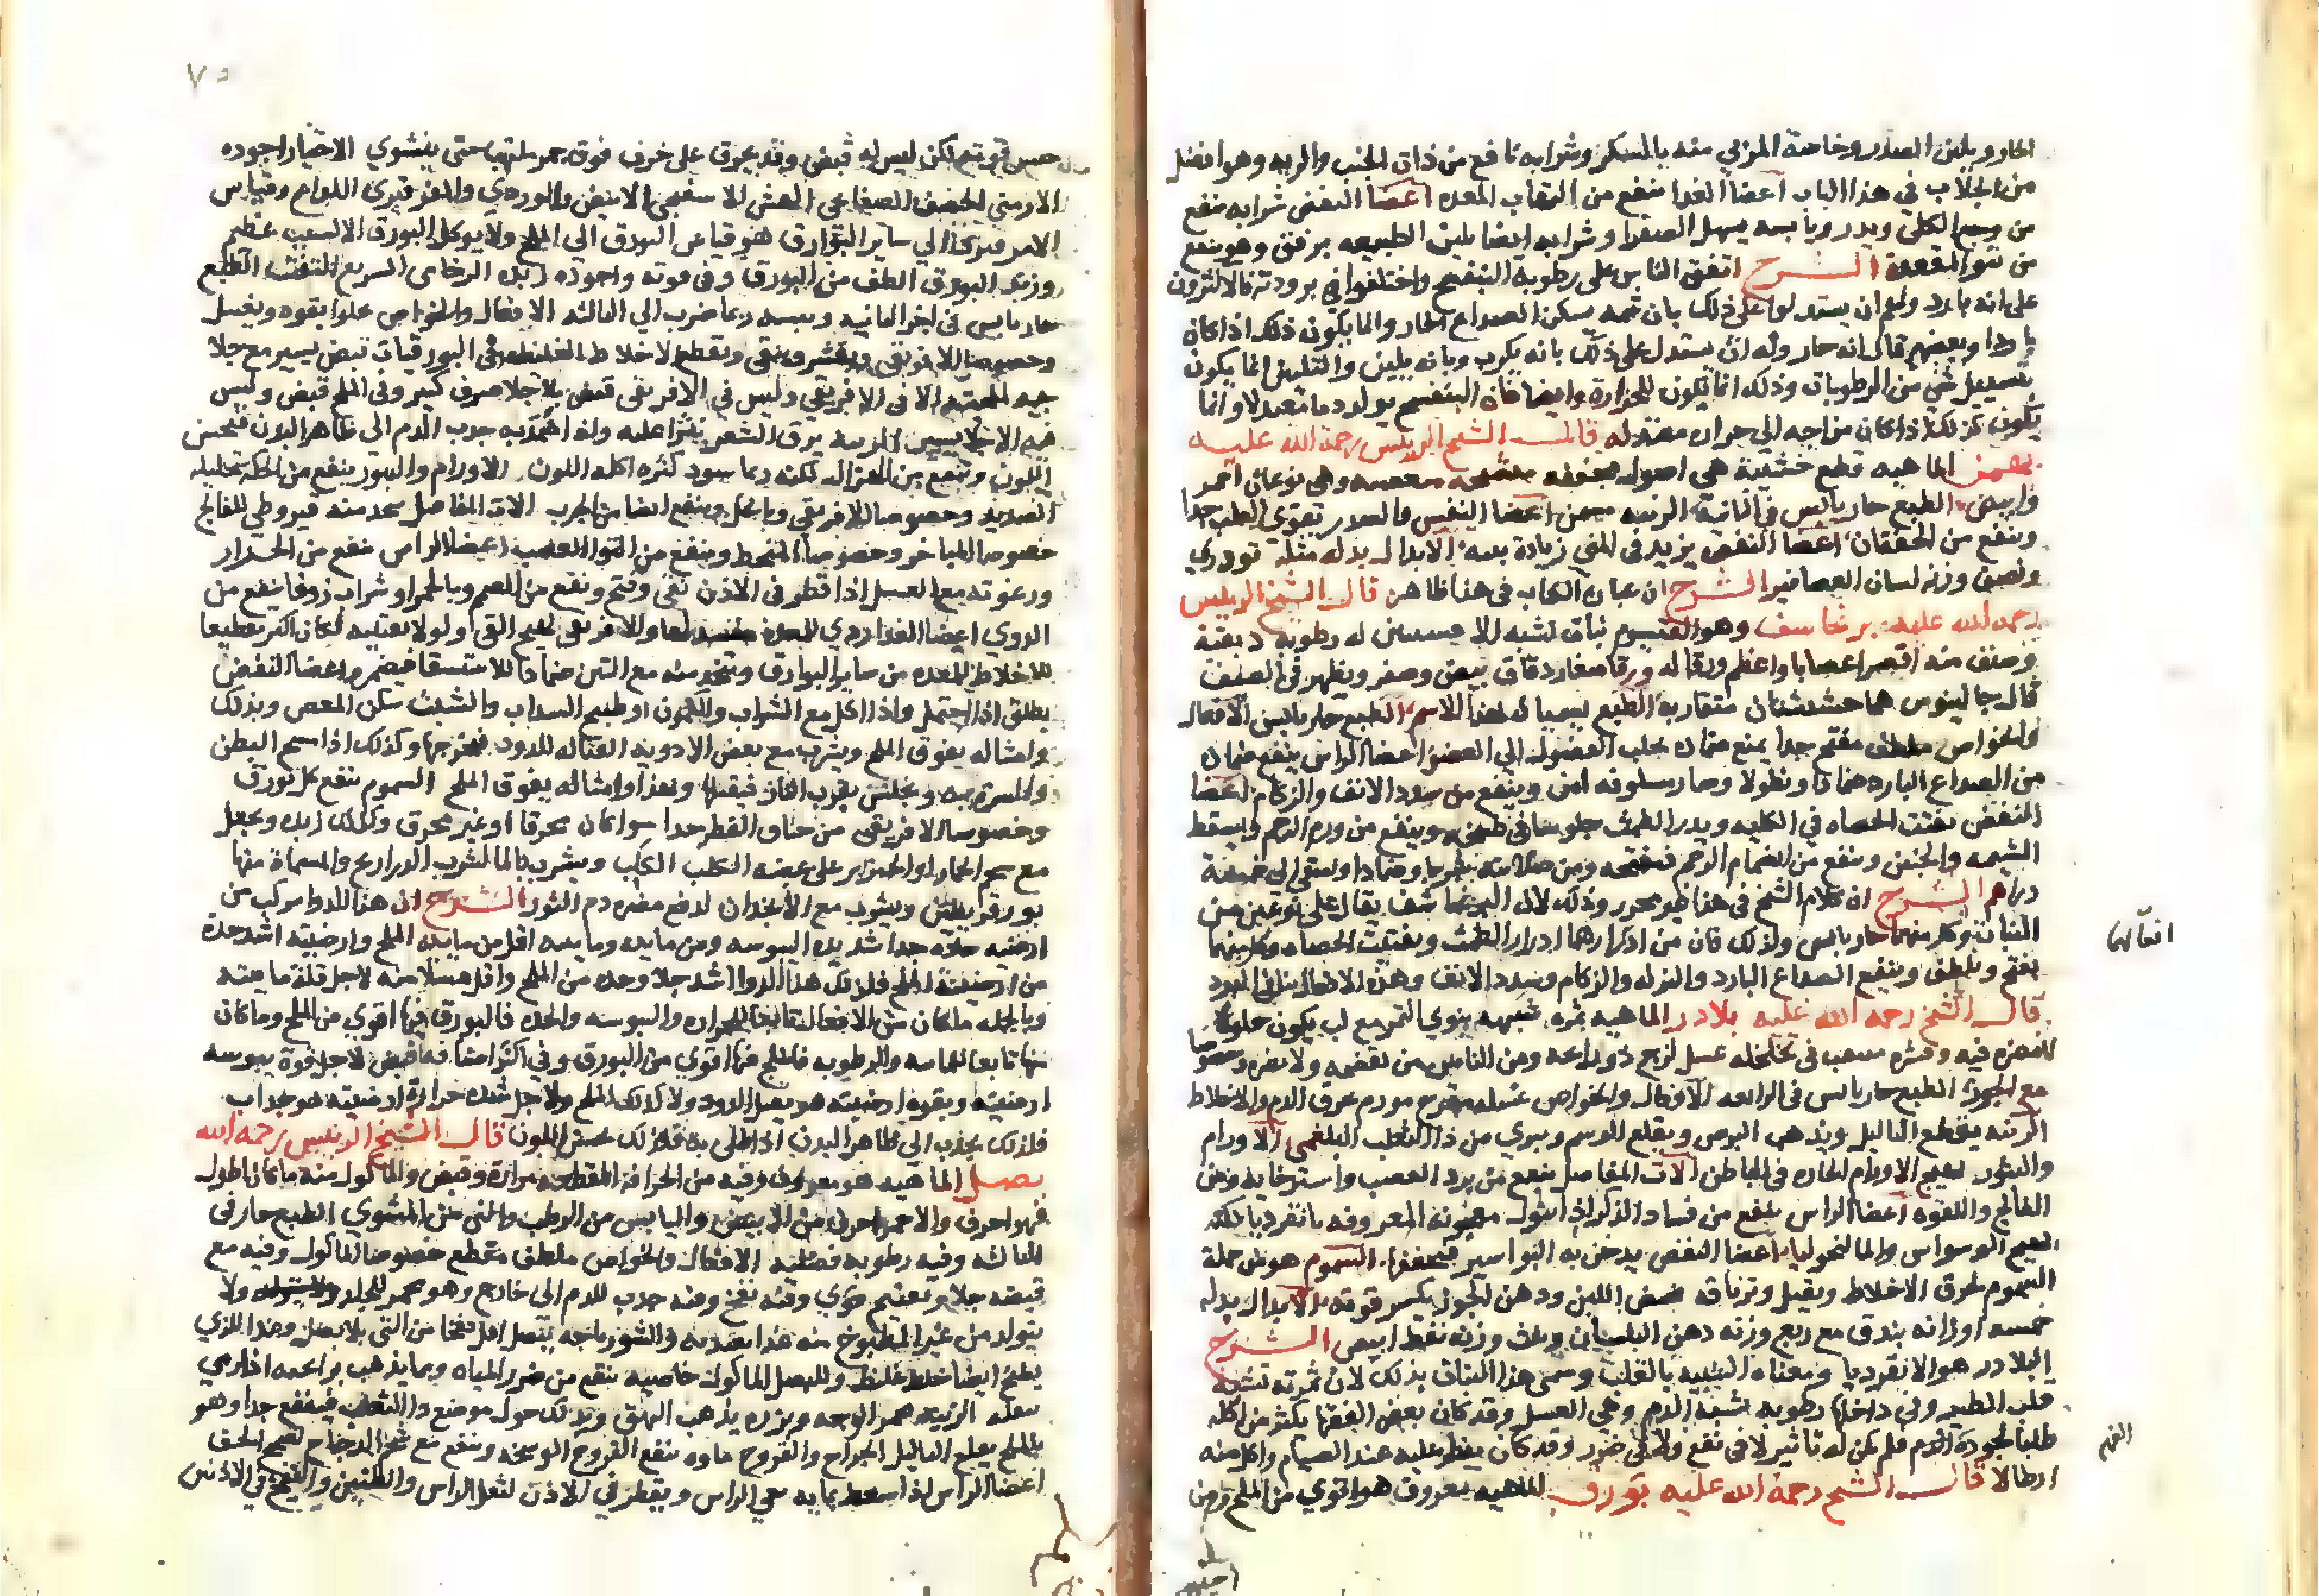 الحار ويلين الصدر وخاصة المربي منه بالسكر وشرابه نافع من ذات الجنب والريه وهو افضل
من الجلاب في هذا الباب اعضا الغدا ينفع من التهاب المعده اعضا النفض شرابه ينفع
من وجع الكلى ويدر ويابسه يسهل الصفرا وشرابه ايضا يلين الطبيعه برفق وهو ينفع
من نتو المقعدة الشرح اتفق الناس على رطوبة البنفسج واختلفوا في برودته فالاكثرون
على انه بارد ولهم ان يستدلوا على ذلك بان شمه يسكن الصداع الحار وانما يكون ذلك اذا كان
باردا وبعضهم قال انه حار وله ان يستدل على ذلك بانه يكرب وبانه يلين والتليين انما يكون
بتسييل شي من الرطوبات وذلك انما يكون للحرارة وايضا فان البنفسج يولد دما معتدلا وانما
يكون كذلك اذا كان مزاجه الى حراره معتدله قال الشيخ الرييس رحمة الله عليه
بهمن الماهيه قطع خشبية هي اصول مجففه وهي نوعان احمر
وابيض الطبع حار يابس في الثانية الزينه مسمن اعضا النفس والصدر يقوى القلب جدا
وينفع من الخفقان اعضا النفض يزيد في المني زيادة بينه الابدال بدله مثله تودري
ونصف وزنه لسان العصافير الشرح ان عبارة الكتاب في هذا ظاهره قال الشيخ الرييس
رحمه الله عليه برنجاسف وهو القيسوم نبات تشبه الافسنتين له رطوبه دبقية
وصنف منه اقصر اغصانا واعظم ورقا له ورقا صغار دقاق بيض وصفر ويظهر في الصيف
قال جالينوس هما حشيشتان متقاربة الطبع يسميا له هذا الاسم الطبع حار يابس الافعال
والخواص ملطف مفتح جدا يمنع ضماده بجلب الفضول الي العضو اعضا الراس ينفع ضماده
من الصداع البارد ضمادا ونطولا وينفع من سدد الانف والزكام اعضا
النفض يفتت الحصاه في الكليه ويدر الطمث جلوسا في طبيخه وينفع من ورم الرحم ويسقط
المشيمه والجنين وينفع من انضمام الرحم فيفتحه ومن صلابته شربا وضمادا ويسقى الى خمسة
دراهم الشرح ان كلام الشيخ في هذا غير محرر وذلك لان البرنجاسف يقال على نوعين من
النبات وكل منهما حار يابس ولذلك فان من ادرارهما ادرار الطمث وتفتيت الحصاه وكل منهما
يفتح ويلطف وينفع الصداع البارد والنزله والزكام وسدد الانف
افعالهما
قال الشيخ رحمه الله عليه بلادر الماهيه ثمره شبيهه بنوي التمر مع لب يكون حلو
لا مضره فيه وقشره متخلخله عسل لزج ذو رايحه ومن الناس من يقضمه ولا يضره وخصوصا
مع الجوز الطبع حار يابس في الرابعه الافعال والخواص عسله مقرح مورم محرق الدم والاخلاط
الزينه يقطع الثاليل ويذهب البرص ويقلع الوسم ويبري من دا الثعلب البلغمي الاورام
والبثور يهيج الاورام الحاره في الباطن الات المفاصل ينفع من برد العصب واسترخايه ومن
الفالج واللقوه اعضا الراس ينفع من فساد الذكر اذا تنوول معجونه المعروفه بانقرديا لكنه
يهيج الوسواس والمالنخوليا اعضا النفض يدخن به البواسير فيجففها السموم هو من جملة
السموم يحرق الاخلاط ويقتل وترياقه مخيض اللبن ودهن الجوز يكسر قوته الابدال بدله
خمسه اوزانه بندق مع ربع وزنه دهن البلسان وثلث وزنه نفط ابيض الشرح
البلادر هو الانقرديا ومعناه الشبيه بالقلب وسمي هذا النبات بذلك لان ثمرته تشبه
قلب الطير وفي داخلها رطوبه شبه الدم وهي العسل وقد كان بعض الفقها يكثر من اكله
الفهم
طلبا لجودة الفهم فلم يكن له تاثير لا في نفع ولا في ضرر وقد كان يفطر عليه عند الصيام واكل منه
ارطالا قال الشيخ رحمة الله عليه بورق الماهيه معروف هو اقوي من الملح ومن
٧٥
قوته لكن ليس له قبض وقد يحرق على خزف فوق جمر ملتهب حتى ينشوي الاختيار اجوده
الارمني الخفيف الصفايحي الهش الاسفنجي الابيض والوردي والفرفيري اللذاع وقياس
الافريقي الي ساير البوارق هو قياس البورق الي الملح ولا يوكل البورق الا لسبب عظيم
وزبد البورق الطف من البورق وفي قوته واجوده زبده الزجاجي السريع التفتت الطبع
حار يابس في اخر الثانيه ويبسه ربما ضرب الي الثالثه الافعال والخواص جلا بقوه ويغسل
وخصوصا الافريقي ويقشر وينقي ويقطع الاخلاط الغليظه وفي البورقيات قبض يسير مع جلا
جيد للملحيه الا في الافريقي وليس في الافريقي قبض بل جلا صرف كثير وفي الملح قبض وليس
فيه الا جلا يسير الزينه يرق الشعر نثرا عليه واذا ضمد به جذب الدم الي ظاهر البدن فيحسن
اللون وينفع من الهزال لكنه ربما سود كثره اكله اللون الاورام والبثور ينفع من الحكه لتحليله
الصديد وخصوصا الافريقي وبالخل وينفع ايضا من الجرب الات المفاصل يتخذ منه قيروطي للفالج
خصوصا المتاخر وخصوصا المنحط وينفع من التوا العصب اعضا الراس ينفع من الحزاز
ورغوته مع العسل اذا قطر في الاذن نقى وفتح ونفع من الصمم وبالخمر او شراب زوفا ينفع من
الدوي اعضا الغدا ردي للمعدة مفسد لها والافريقي يهيج القي ولولا تغثيته لكان اكثر تقطيعا
للاخلاط للمعده من ساير البوارق ويتخذ منه مع التين ضمادا للاستسقا فيضمر اعضا النفض
يطلق اذا احتمل واذا اكل مع الشراب والكمون او طبيخ السداب والشبث سكن المغص وبذلك
وامثاله يفوق الملح ويشرب مع بعض الادويه القتاله للدود فيخرجها وكذلك اذا مسح البطن
والسرة به ويجلس بقرب النار فيقتلها وبهذا وامثاله يفوق الملح السموم ينفع كل بورق
وخصوصا الافريقي من خناق الفطر جدا سوا كان محرقا او غير محرق وكذلك زبده ويجعل
مع شحم الحمار او الخنزير على عضه الكلب الكلب ويشرب بالما لشرب الذراريح والمسماة منها
بورقريطس ويشرب مع الانجدان لدفع مضره دم الثور الشرح ان هذا الدوا مركب من
ارضيه حاده جدا شديده اليبوسه ومن مايه وما يبه اقل من مايه الملح وارضيته اشد حدة
من ارضية الملح فلذلك هذا الدوا اشد جلا وحده من الملح واقل غسلا منه لاجل قلة مايته
وبالجمله ما كان من الافعال تابعا للحراره واليبوسه والحده فالبورق فيها اقوي من الملح وما كان
منها تابعا للمايه والرطوبه فالملح فيها اقوي من البورق وفي اكثر اصنافه قبض لاجل قوة يبوسه
ارضيته وبقوه ارضيته هو يقتل الدود ولا كذلك الملح ولاجل شده حراره ارضيته هو جذاب
فلذلك يجذب الي ظاهر البدن اذا طلي به فلذلك يحسن اللون قال الشيخ الرييس رحمه الله
بصل الماهيه هو معروف وفيه من الحرافه المقطعه مراره وقبض والماكول منه ما كان اطول
فهو احرف والاحمر احرف من الابيض واليابس من الرطب والنى من المشوي الطبع حار في
الثالثه وفيه رطوبه فضليه الافعال والخواص ملطف مقطع خصوصا الماكول وفيه مع
قبضه جلا وتفتيح قوي وفيه نفخ وفيه جذب للدم الى خارج وهو محمر للجلد ولا
يتولد من غير المطبوخ منه غذا يعتد به والشوربا به اقل نفخا من التي بلا بصل وهذا الذي
يطبخ ايضا خلطه غليظ وللبصل الماكول خاصيه ينفع من ضرر المياه ومما يذهب برايحته اذا رمي
ثفله الزينه يحمر الوجه وبزره يذهب البهق ويدلك حول موضع دا الثعلب فينفع جدا وهو
بالملح يقلع الثاليل الجراح والقروح ماوه ينفع القروح الوسخه وينفع مع شحم الدجاج لسحج الخف
اعضا الراس اذا سعط بمايه نقي الراس ويقطر في الاذن لثقل الراس والطنين والقيح في الاذنين